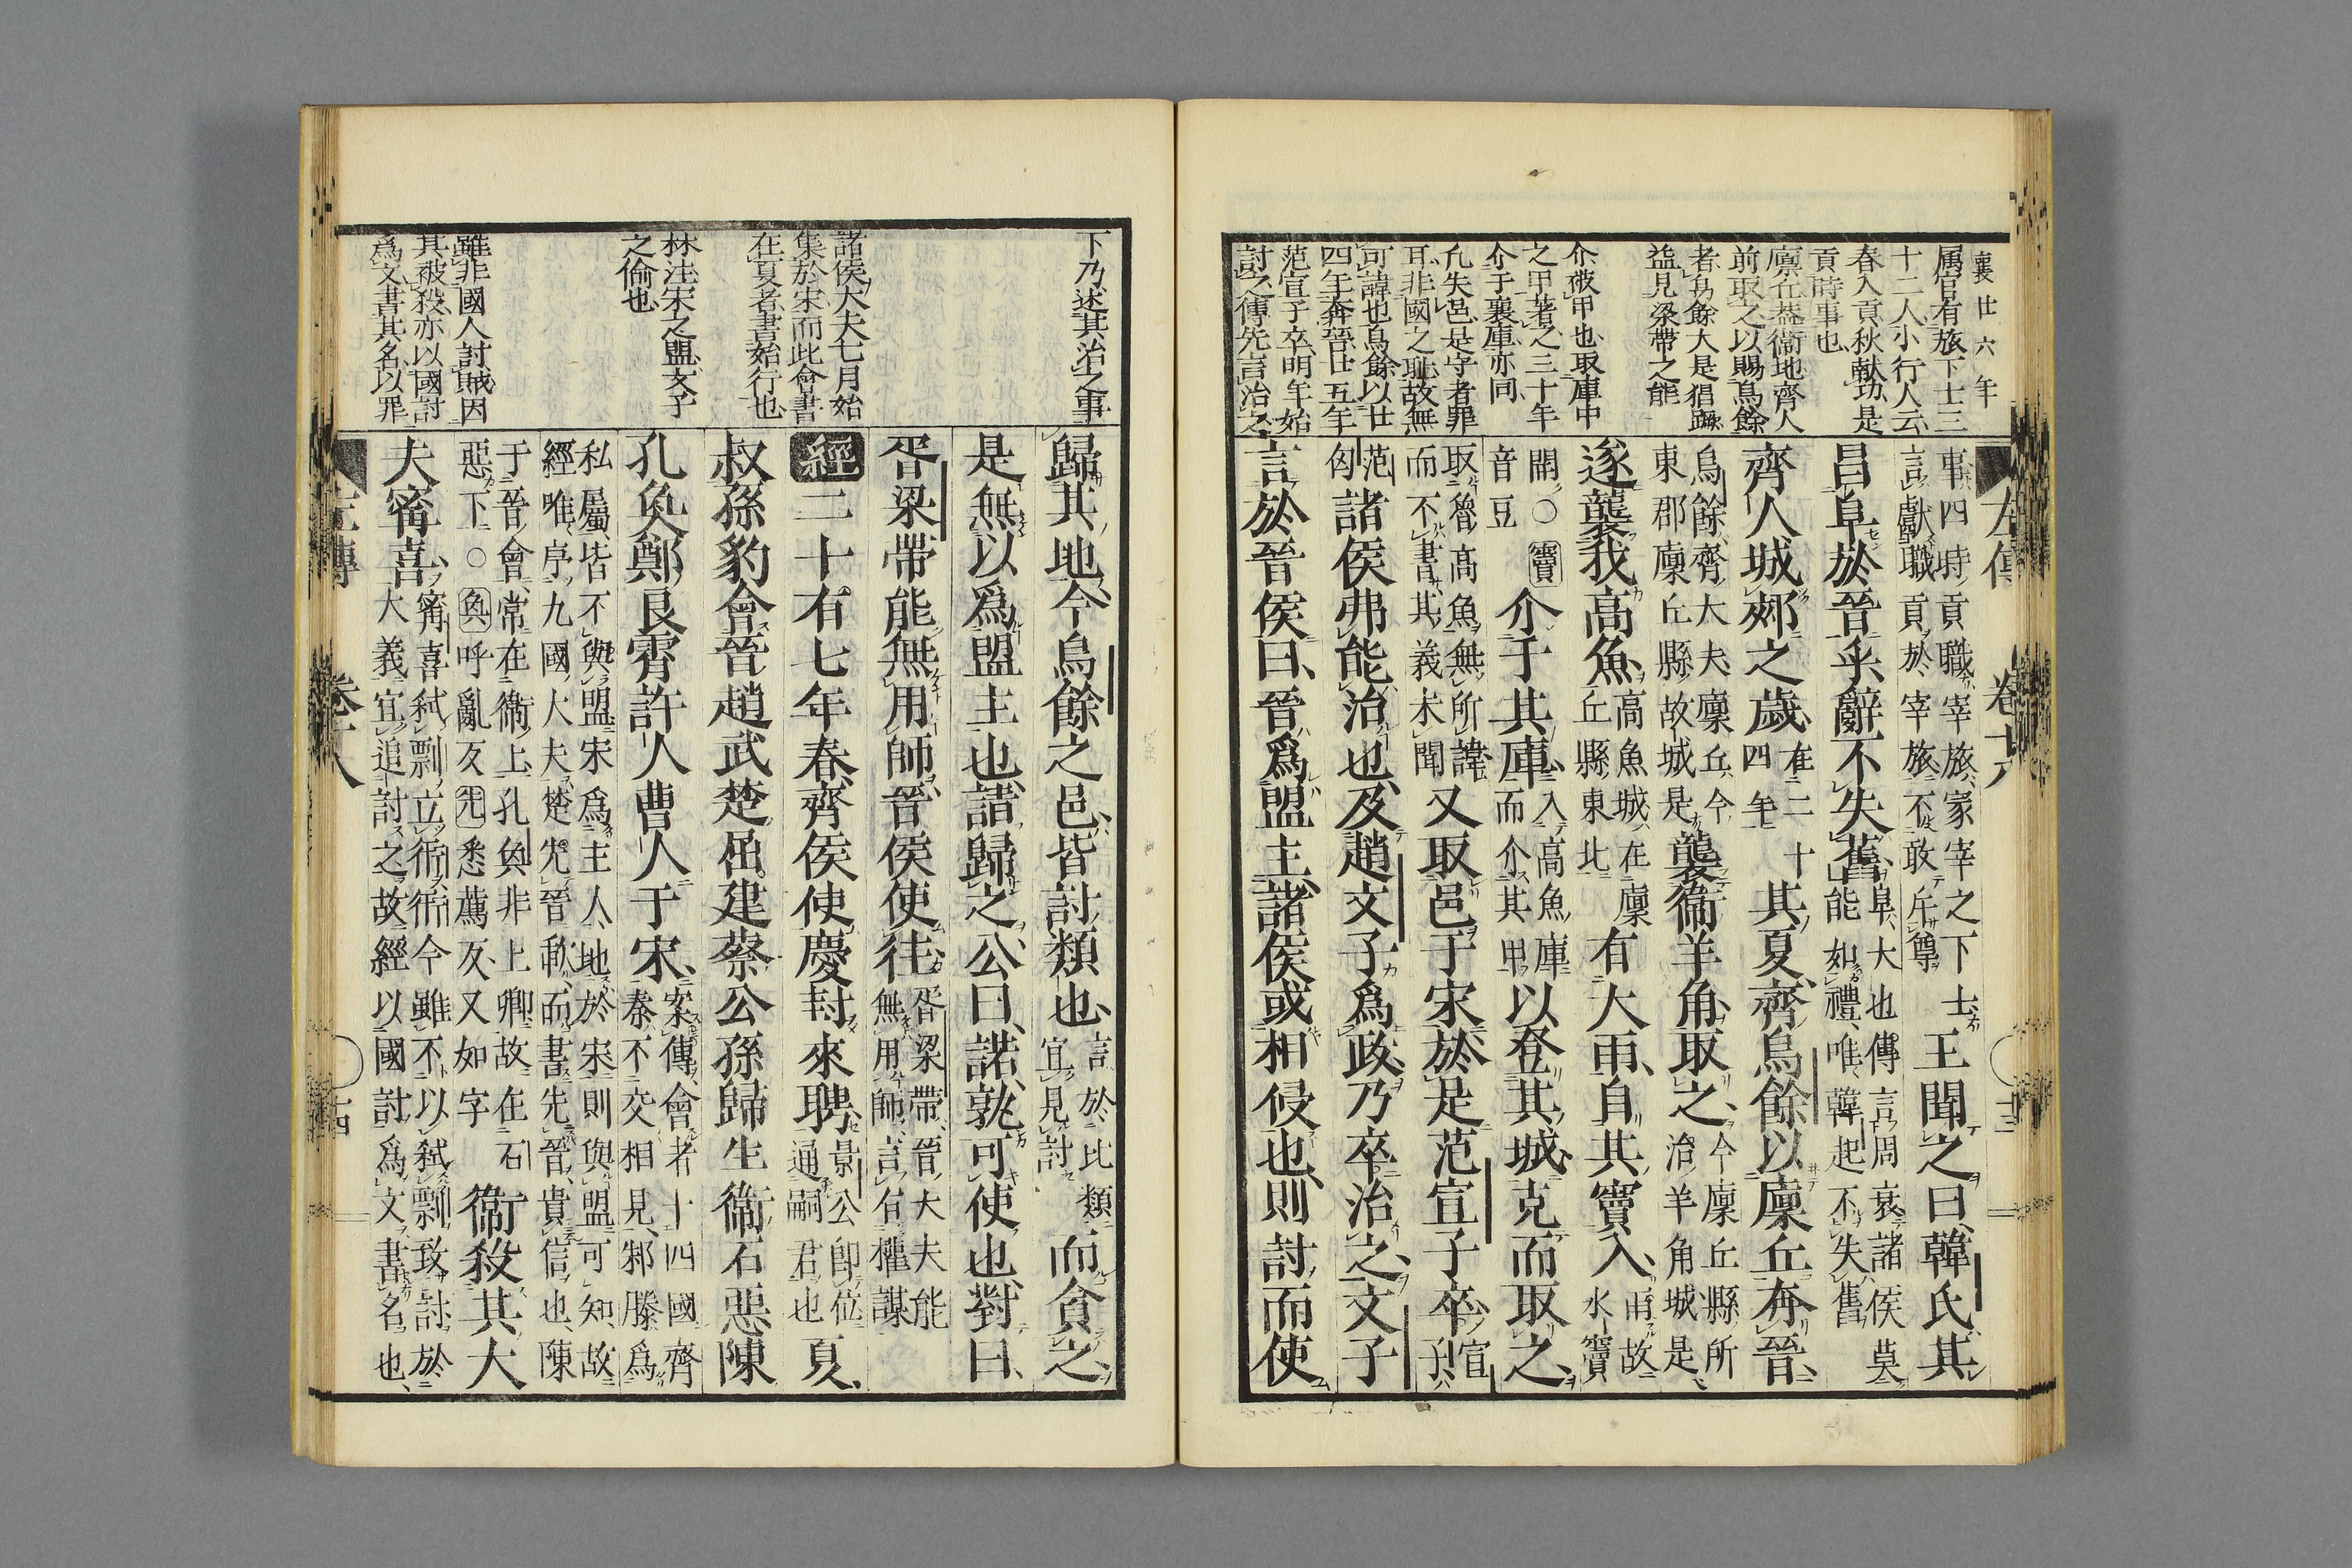 襄廿六年
属官有旅下士三
十二人小行人云
春入貢秋献功是
貢時事也
廩丘葢衞地齊人
前取之以賜烏餘
者烏餘大是猖蹶
益見梁帶之能
介被甲也取庫中
之甲著之三十年
介于襄庫亦同
凢失邑是守者罪
耳非國之恥故無
可諱也烏餘以廿
四年奔晉廿五年
范宣子卒明年始
討之傳先言治之
左傳 卷十八 十三
事四時貢職宰旅家宰之下士
言獻職貢於宰旅不敢斥尊
王聞之曰韓氏其
昌阜於晉乎辭不失舊
阜大也傳言周衰諸侯莫
能如禮唯韓起不失舊
齊人城郟之歲
在二十
四年
其夏齊烏餘以廩丘奔晉
烏餘齊大夫廩丘今
東郡廩丘縣故城是
襲衞羊角取之
今廩丘縣所
治羊角城是
遂襲我高魚
高魚城在廩
丘縣東北
有大雨自其竇入
雨故
水竇
開○竇
音豆
介于其庫
入高魚庫
而介其甲
以登其城克而取之
取魯高魚無所諱
而不書其義未聞
又取邑于宋於是范宣子卒
宣
子
范
匄
諸侯弗能治也及趙文子爲政乃卒治之文子
言於晉侯曰晉爲盟主諸侯或相侵也則討而使
下乃述其治之事
諸侯大夫七月始
集於宋而此會書
在夏者書始行也
林注宋之盟文子
之倫也
雖非國人討賊因
其被殺亦以國討
爲文書其名以罪
歸其地今烏餘之邑皆討類也
言於比類
宜見討
而貪之
是無以爲盟主也請歸之公曰諾孰可使也對曰
胥梁帶能無用師晉侯使往
胥梁帶晉大夫能
無用師言有權謀
經二十有七年春齊侯使慶封來聘
景公卽位
通嗣君也
夏
叔孫豹會晉趙武楚屈建蔡公孫歸生衞石惡陳
孔奐鄭良霄許人曹人于宋
案傳會者十四國齊
秦不交相見邾滕爲
私屬皆不與盟宋爲主人地於宋則與盟可知故
經唯序九國大夫楚先晉歃而書先晉貴信也陳
于晉會常在衞上孔奐非上卿故在石
惡下○奐呼亂反先悉薦反又如字
衞殺其大
夫甯喜
甯喜弑剽立衎衎今雖不以弑剽致討於
大義宜追討之故經以國討爲文書名也
左傳 卷十八 十四